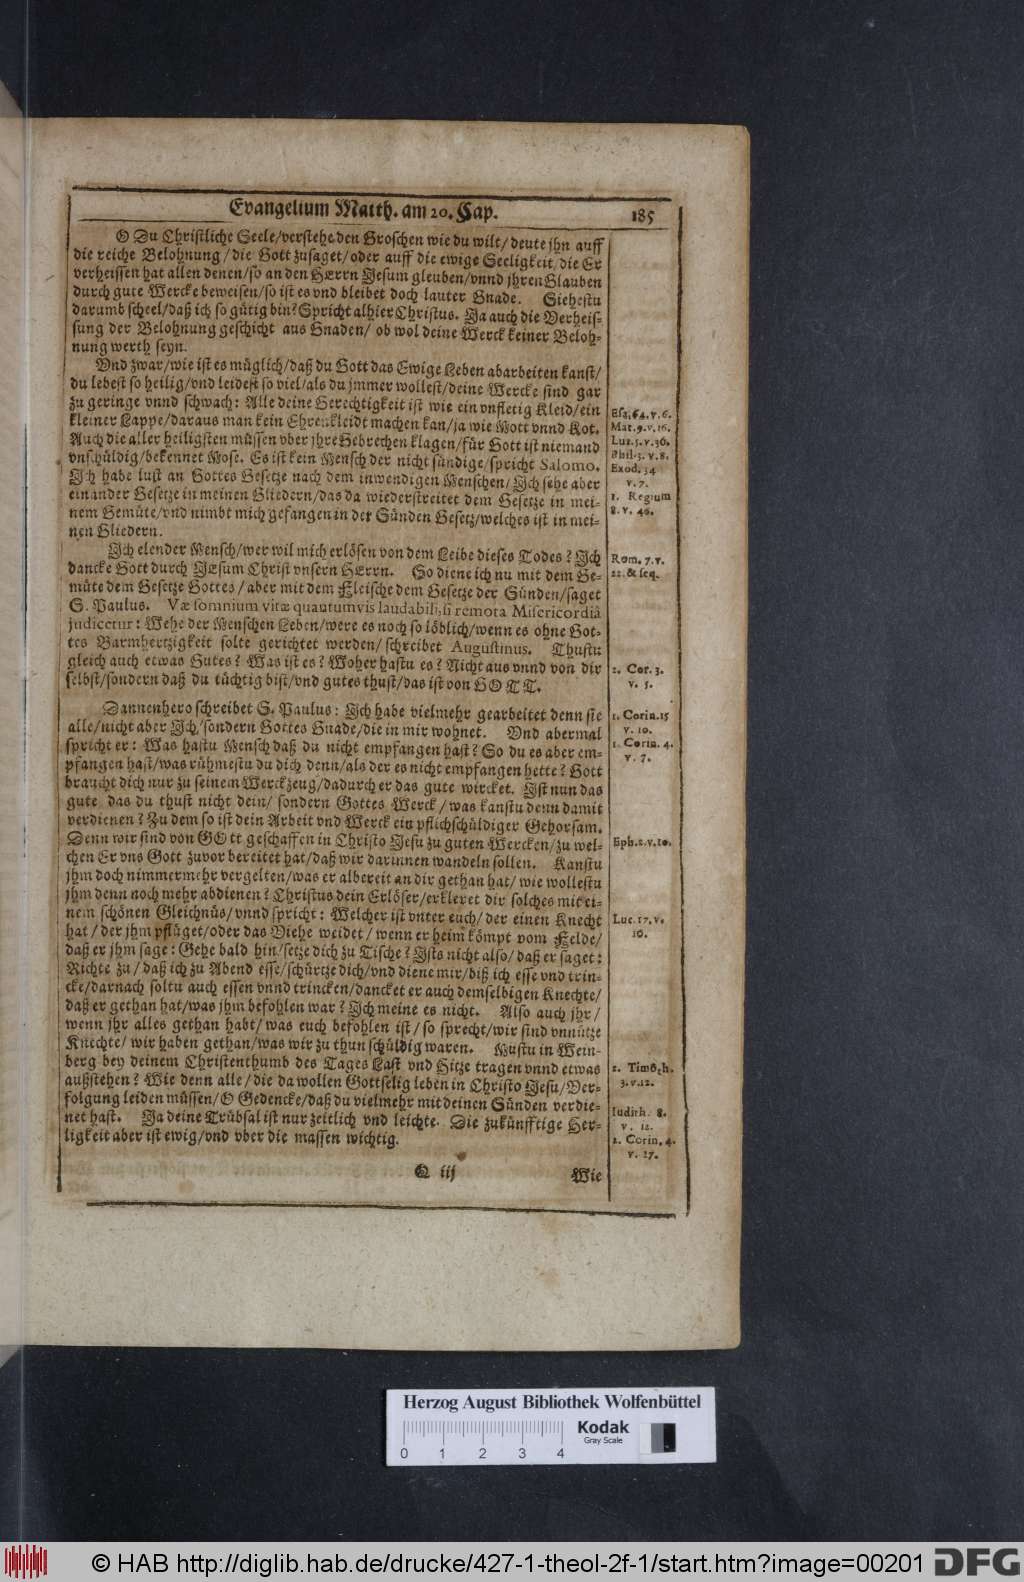 Evangelium Matth. am 20. Cap. 185
O Du Christliche Seele/verstehe den Groschen wie du wilt/ deute jhn auff
die reiche Belohnung/die Gott zusaget/oder auff die ewige Seeligkeit/die Er
verheissen hat allen denen/so an den HErrn Jesum gleuben/vnnd jhren Glauben
durch gute Wercke beweisen/so ist es vnd bleibet doch lauter Gnade. Siehestu
darumb scheel/daß ich so gütig bin? Spricht alhier Christus. Ja auch die Verheis-
sung der Belohnung geschicht aus Gnaden/ ob wol deine Werck keiner Beloh-
nung werth seyn.
Vnd zwar/wie ist es müglich/daß du Gott das Ewige Leben abarbeiten kanst/
du lebest so heilig/vnd leidest so viel/als du jmmer wollest/deine Wercke sind gar
zu geringe vnnd schwach: Alle deine Gerechtigkeit ist wie ein vnfletig Kleid/ein
kleiner Lappe/daraus man kein Ehrenkleidt machen kan/ja wie Mott vnnd Kot.
Auch die aller heiligsten müssen vber jhre Gebrechen klagen/für Gott ist niemand
vnschüldig/bekennet Mose. Es ist kein Mensch der nicht sündige/spricht Salomo.
Ich habe lust an Gottes Gesetze nach dem inwendigen Menschen/Ich sehe aber
ein ander Gesetze in meinen Gliedern/das da wiederstreitet dem Gesetze in mei-
nem Gemüte/vnd nimbt mich gefangen in der Sünden Gesetz/welches ist in mei-
nen Gliedern.
Ich elender Mensch/wer wil mich erlösen von dem Leibe dieses Todes? Ich
dancke Gott durch JEsum Christ vnsern HErrn. So diene ich nu mit dem Ge-
müte dem Gesetze Gottes/aber mit dem Fleische dem Gesetze der Sünden/saget
S. Paulus. Væ somnium vitæ quantumvis laudabili, si remota Misericordiâ
judicetur: Wehe der Menschen Leben/were es noch so löblich/wenn es ohne Got-
tes Barmhertzigkeit solte gerichtet werden/schreibet Augustinus. Thustu
gleich auch etwas Gutes? Was ist es? Woher hastu es? Nicht aus vnnd von dir
selbst/sondern daß du tüchtig bist/vnd gutes thust/das ist von GOTT.
Dannenhero schreibet S. Paulus: Ich habe vielmehr gearbeitet denn sie
alle/nicht aber Ich/sondern Gottes Gnade/die in mir wohnet. Vnd abermal
spricht er: Was hastu Mensch daß du nicht empfangen hast? So du es aber em-
pfangen hast/was rühmestu du dich denn/als der es nicht empfangen hette? Gott
braucht dich nur zu seinem Werckzeug/dadurch er das gute wircket. Ist nun das
gute das du thust nicht dein/ sondern Gottes Werck/was kanstu denn damit
verdienen? Zu dem so ist dein Arbeit vnd Werck ein pflichschüldiger Gehorsam.
Denn wir sind von GOtt geschaffen in Christo Jesu zu guten Wercken/zu wel-
chen Er vns Gott zuvor bereitet hat/daß wir darinnen wandeln sollen. Kanstu
jhm doch nimmermehr vergelten/was er albereit an dir gethan hat/ wie wollestu
jhm denn noch mehr abdienen? Christus dein Erlöser/erkleret dir solches mit ei-
nem schönen Gleichnüs/vnnd spricht: Welcher ist vnter euch/der einen Knecht
hat/der jhm pflüget/oder das Viehe weidet/wenn er heim kömpt vom Felde/
daß er jhm sage: Gehe bald hin/setze dich zu Tische? Ists nicht also/ daß er saget:
Richte zu/daß ich zu Abend esse/schürtze dich/vnd diene mir/biß ich esse vnd trin-
cke/darnach soltu auch essen vnnd trincken/dancket er auch demselbigen Knechte/
daß er gethan hat/was jhm befohlen war? Ich meine es nicht. Also auch jhr/
wenn jhr alles gethan habt/was euch befohlen ist/so sprecht/wir sind vnnütze
Knechte/wir haben gethan/was wir zu thun schüldig waren. Mustu in Wein-
berg bey deinem Christenthumb des Tages Last vnd Hitze tragen vnnd etwas
außstehen? Wie denn alle/die da wollen Gottselig leben in Christo Jesu/Ver-
folgung leiden müssen/O Gedencke/daß du vielmehr mit deinen Sünden verdie-
net hast. Ja deine Trübsal ist nur zeitlich vnd leichte. Die zukünfftige Her-
ligkeit aber ist ewig/vnd vber die massen wichtig.
Q iij Wie
Esa. 64. v. 6.
Mat. 9. v. 16.
Luc. 5. v. 36.
Phil. 3. v. 8.
Exod. 34
v. 7.
1. Regum
8. v. 46.
Rom. 7. v.
22. & seq.
2. Cor. 3.
v. 5.
1. Corin. 15
v. 10.
1. Corin. 4.
v. 7.
Eph. 2. v. 10.
Luc. 17. v.
10.
2. Timoth.
3. v. 12.
Iudith. 8.
v. 12.
2. Corin. 4.
v. 17.
Herzog August Bibliothek Wolfenbüttel
Kodak
Gray Scale
0 1 2 3 4
© HAB http://diglib.hab.de/drucke/427-1-theol-2f-1/start.htm?image=00201 DFG